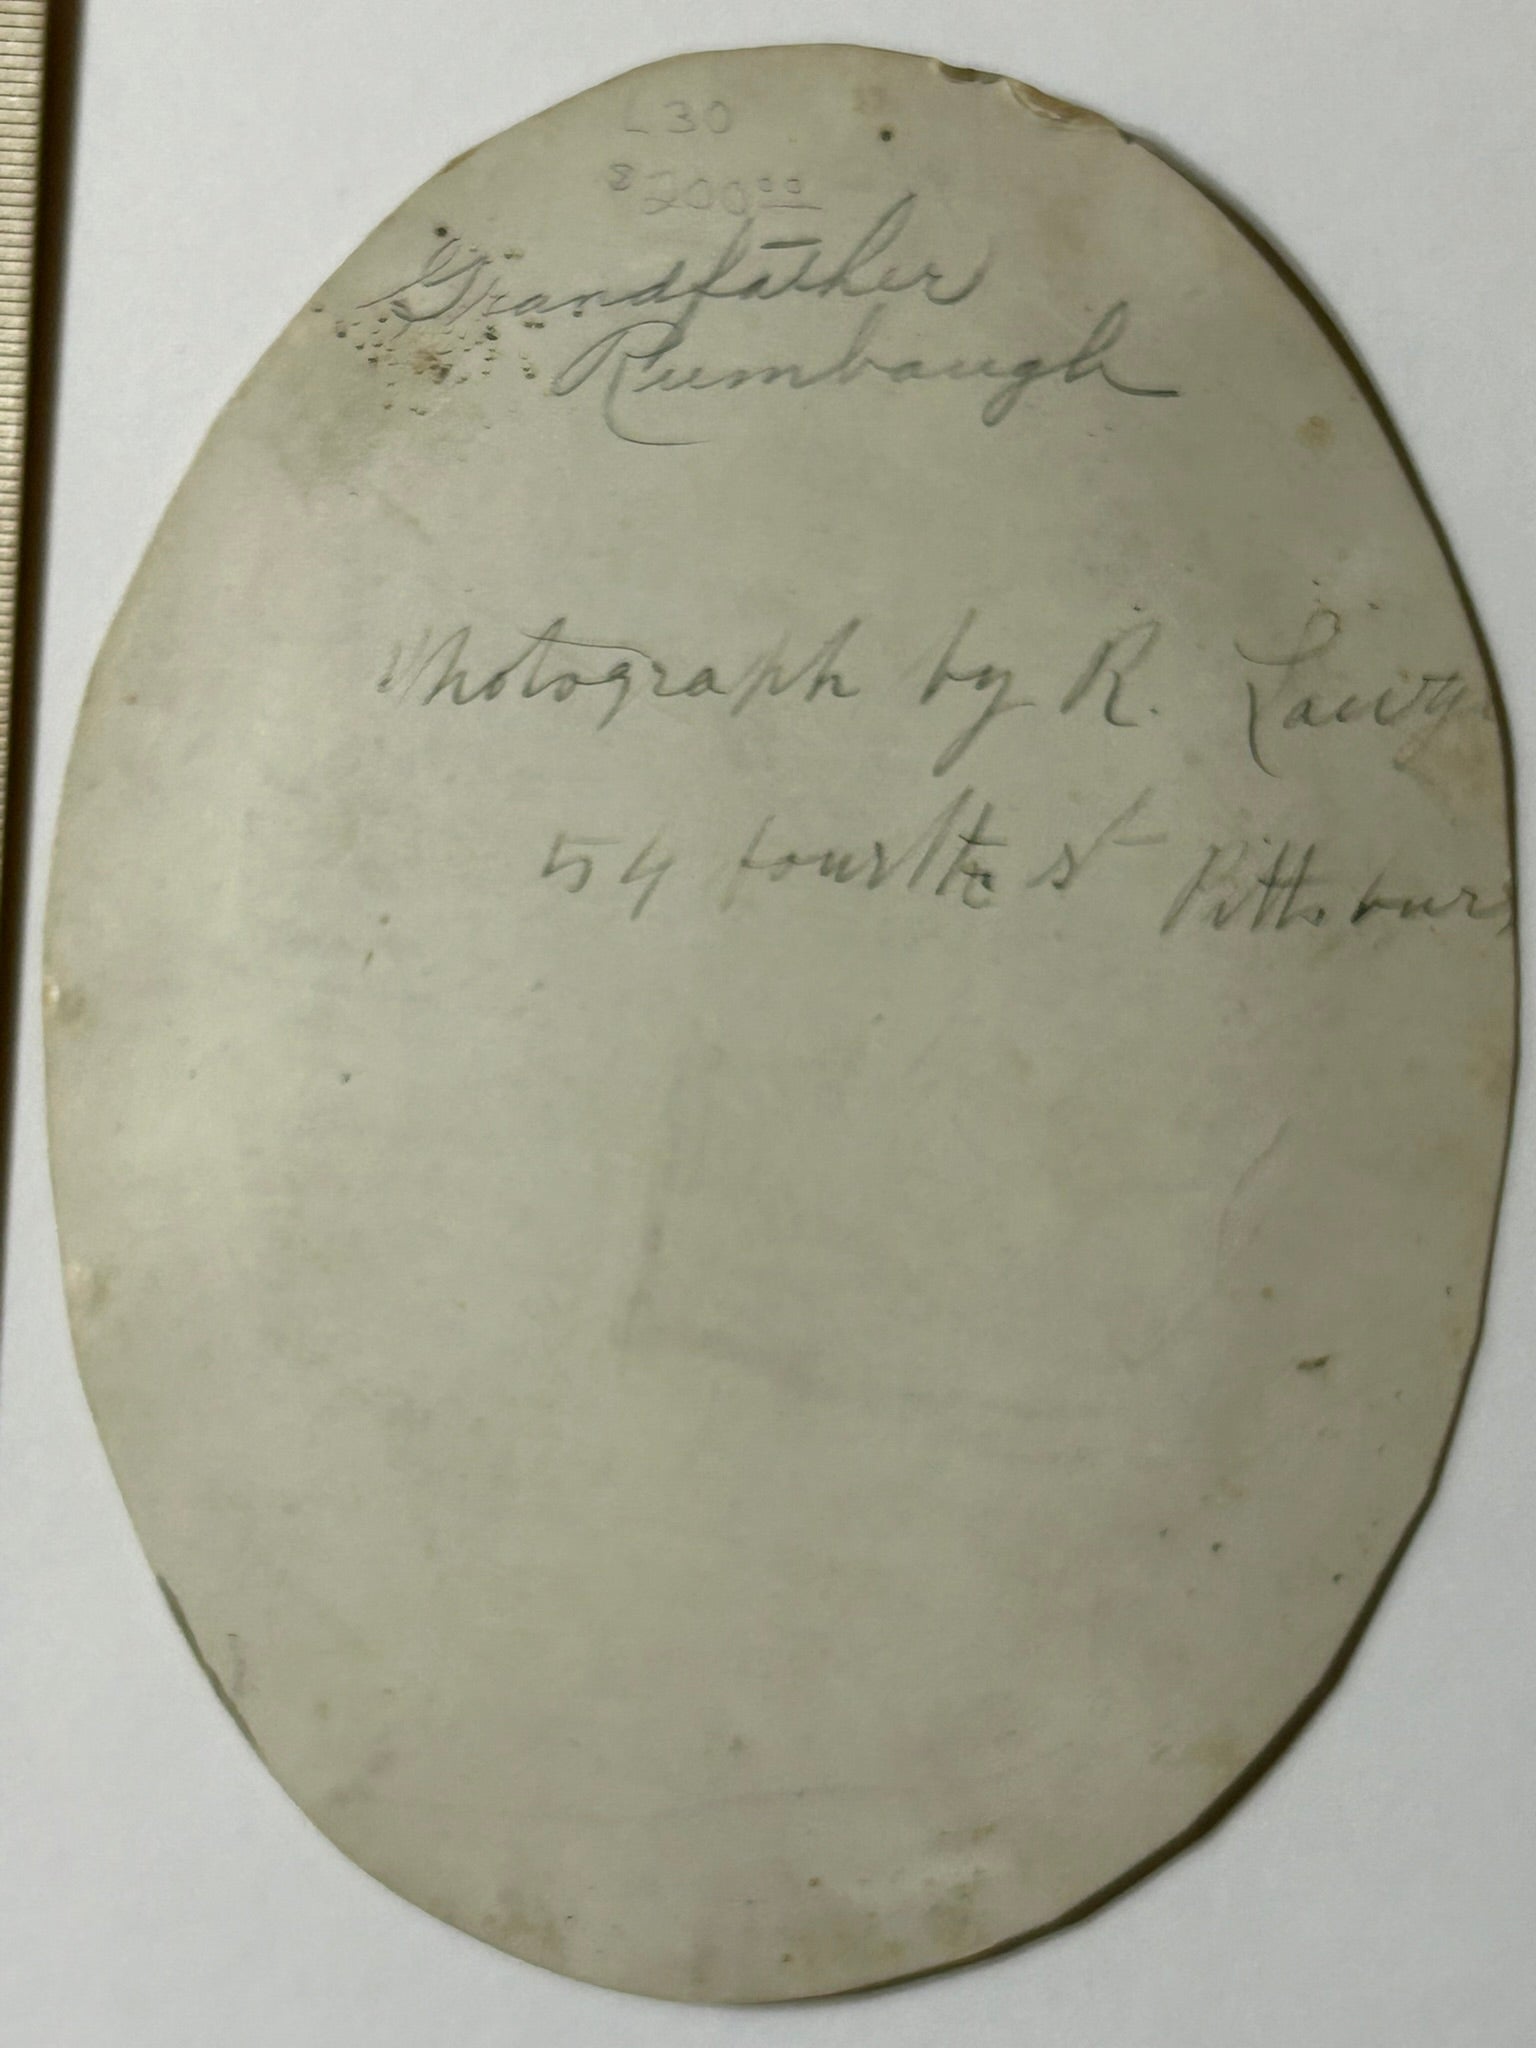 L 30
$200.00
Grandfather
Rumbaugh
Photograph by R.
54 fourth st Pittsburg